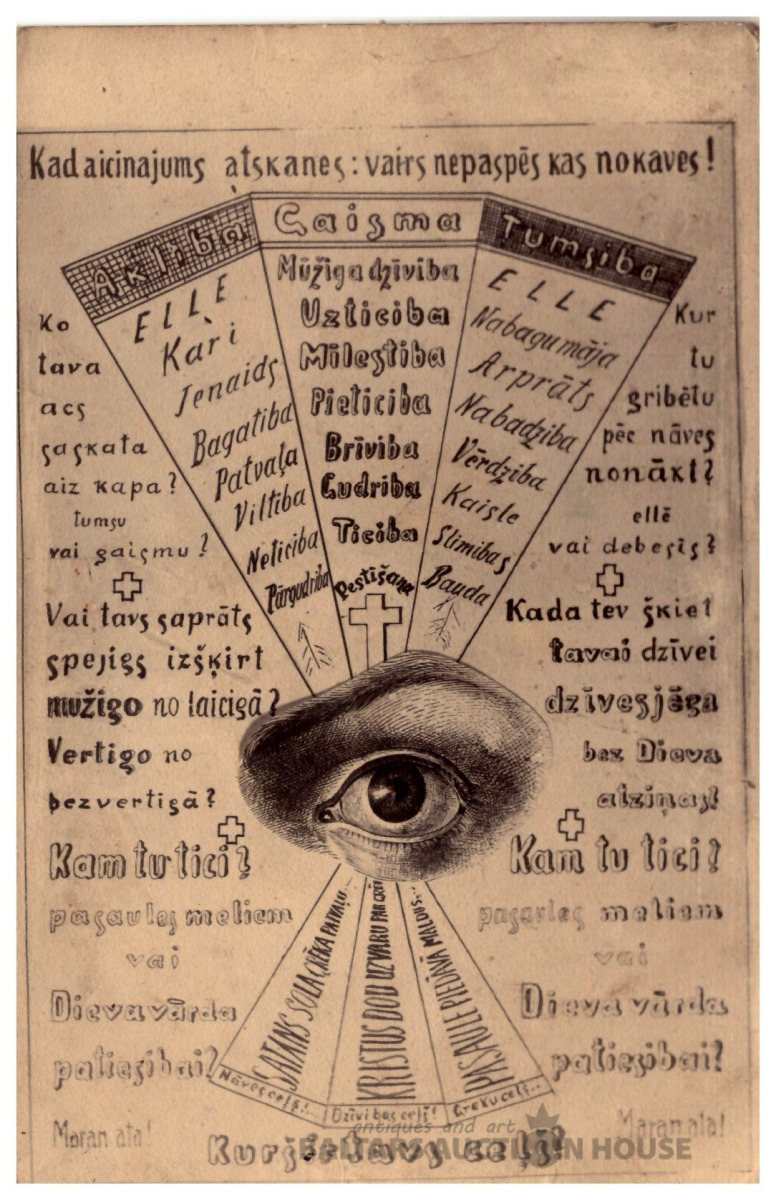 Kad aicinajums atskanes: vairs nepaspēs kas nokaves!
Aklība
Gaisma
Tumsiba
Ko
tava
acs
saskata
aiz kapa?
tumsu
vai gaismu?
Vai tavs saprāts
spejigs izšķirt
mužigo no laicigā?
Vertigo no
bezvertigā?
Kam tu tici?
pasaules meliem
vai
Dieva vārda
patiesibai?
Maran ata!
ELLE
Kari
Ienaids
Bagatiba
Patvaļa
Viltība
Neticiba
Pārgudriba
Mūžiga dzīviba
Uzticiba
Mīlestiba
Pieticiba
Brīviba
Gudriba
Ticiba
Pestīšana
ELLE
Nabagumāja
Arprāts
Nabadziba
Vērdziba
Kaisle
Slimibas
Bauda
Kur
tu
gribētu
pēc nāves
nonākt?
ellē
vai debesīs?
Kada tev šķiet
tavai dzīvei
dzīvesjēga
bez Dieva
atziņas!
Kam tu tici?
pasaules meliem
vai
Dieva vārda
patiesibai!
Maran ata!
SATANS SOLA GRĒKA PATVAĻU...
KRISTUS DOD UZVARU PAR
PASAULE PIEDĀVĀ
Nāves ceļš!..
Dzīvibas ceļš!
Greku ceļš...
Kurš ir tavs ceļš?
antiques and art
BALTARS AUCTION HOUSE